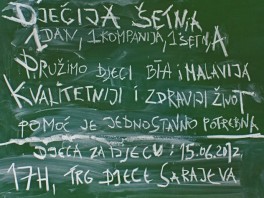 DJEČIJA ŠETNJA
1 DAN, 1 KOMPANIJA, 1 ŠETNJA
PRUŽIMO DJECI BIH I MALAVIJA
KVALITETNIJI I ZDRAVIJI ŽIVOT
POMOĆ JE JEDNOSTAVNO POTREBNA
DJECA ZA DJECU 15.06.2012,
17H, TRG DJECE SARAJEVA